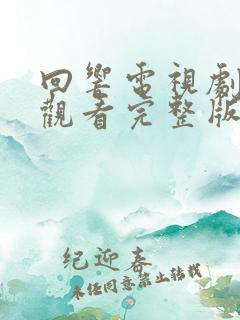 回響電視劇
觀看完整版
纪迎春
未经同意禁止转载